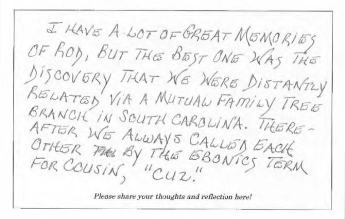 I HAVE A LOT OF GREAT MEMORIES
OF ROD, BUT THE BEST ONE WAS THE
DISCOVERY THAT WE WERE DISTANTLY
RELATED VIA A MUTUAL FAMILY TREE
BRANCH IN SOUTH CAROLINA. THERE-
AFTER WE ALWAYS CALLED EACH
OTHER BY THE EBONICS TERM
FOR COUSIN, "CUZ."
Please share your thoughts and reflection here!